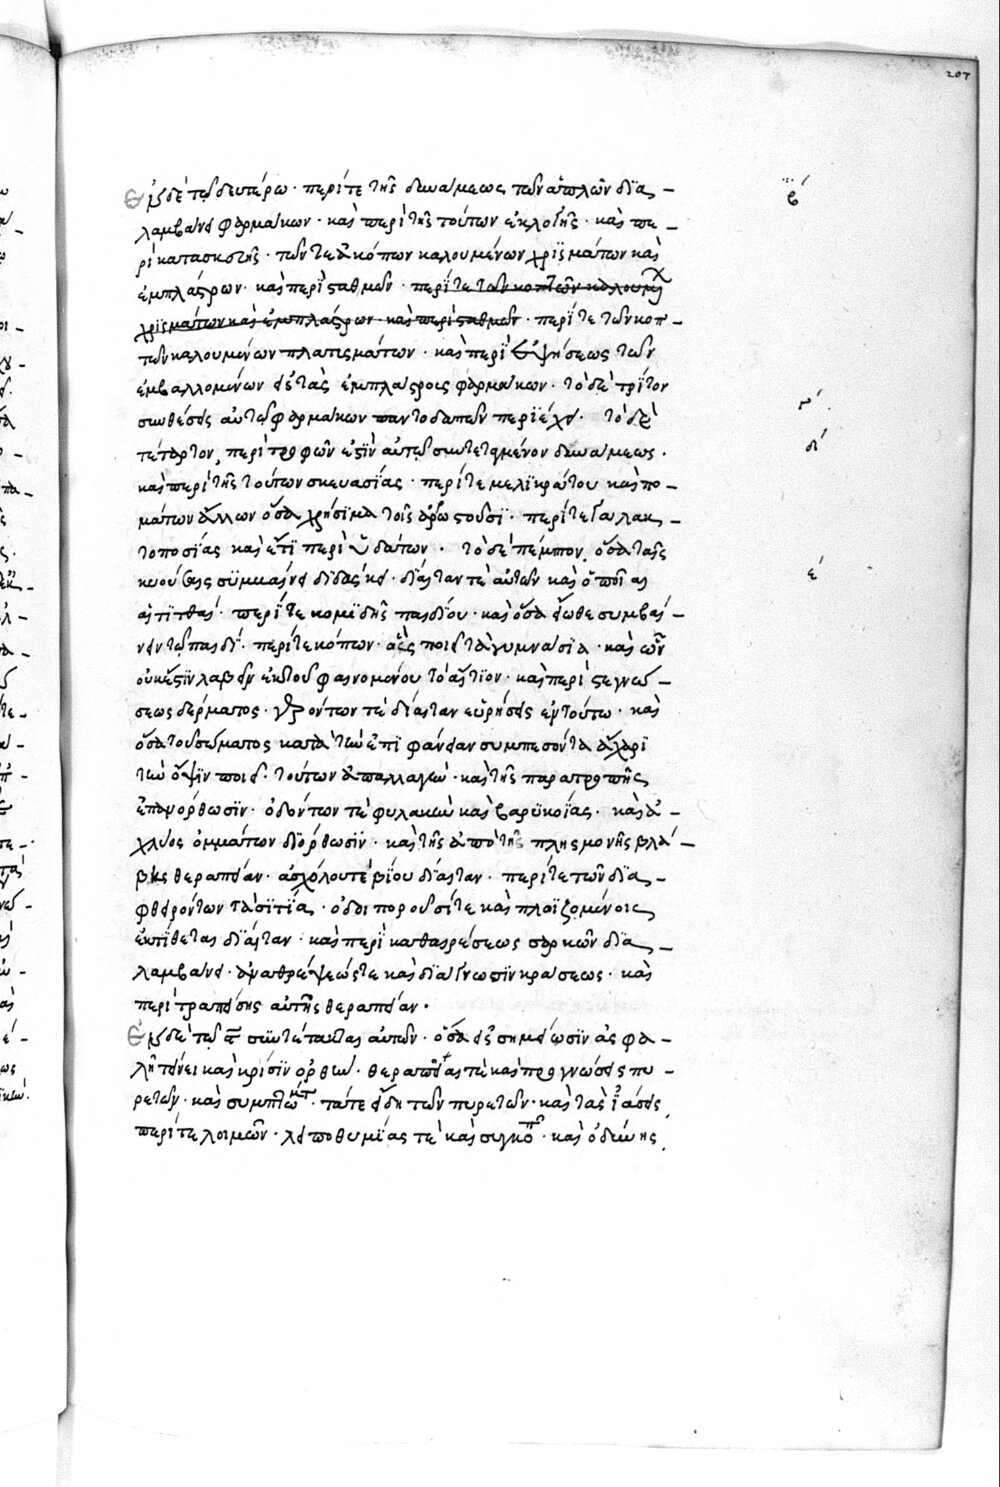 207
Ἐν δὲ τῷ δευτέρω · περί τε τῆς δυνάμεως τῶν ἁπλῶν δϊα –
λαμβάνει φαρμάκων · καὶ περὶ τῆς τούτων ἐκλογῆς · καὶ πε –
ρὶ κατασκευῆς · τῶν τε ἀκόπων καλουμένων χρϊσμάτων καὶ
ἐμπλάστρων · καὶ περὶ σταθμῶν · περί τε τῶν κοπτῶν καλουμέ
χρϊσμάτων καὶ ἐμπλάστρων · καὶ περὶ σταθμῶν · περί τε τῶν κοπ –
τῶν καλουμένων πλατισμάτων · καὶ περὶ ἑψήσεως τῶν
ἐμβαλλομένων εἰς τὰς ἐμπλάστρους φαρμάκων · τὸ δὲ τρίτον
συνθέσεις αὐτῶ φαρμάκων παντοδαπῶν περϊέχει · τὸ δὲ
τέταρτον, περὶ τροφῶν ἐστϊν αὐτῶ συντεταγμένον δυνάμεως ·
καὶ περὶ τῆς τούτων σκευασίας · περί τε μελϊκράτου καὶ πο –
μάτων ἄλλων ὅσα χρήσϊμα τοῖς ἀρρωστοῦσϊ · περί τε γαλακ –
τοποσίας καὶ ἔτϊ περὶ ὑδάτων · τὸ δὲ πέμπτον, ὅσα ταῖς
κυούσαις συμβαίνει διδάσκει · δίαιτάν τε αὐτῶν καὶ ὁποίας
αἰτϊ · περί τε κομϊδῆς παιδίου · καὶ ὅσα εἴωθε συμβαί –
νειν τῶ παιδί · περί τε κόπων · οὓς ποιεῖ τὰ γυμνάσϊα · καὶ ὧν
οὐκ ἔστϊν λαβεῖν ἐκ τοῦ φαινομένου τὸ αἴτϊον · καὶ περὶ στεγνώ –
σεως δέρματος · γερόντων τὲ δίαιταν εὑρήσεις ἐν τούτω · καὶ
ὅσα τοῦ σώματος κατὰ τὴν ἐπϊφάνειαν συμπεσόντα ἄχαρϊ
τὴν ὄψϊν ποιεῖ · τούτων ἀπαλλαγὴν · καὶ τῆς παρατροπῆς
ἐπανόρθωσϊν · ὀδόντων τὲ φυλακὴν καὶ βαρϋκοΐας · καὶ ἀ –
χλύος ὀμμάτων διόρθωσϊν · καὶ τῆς ἀπὸ τῆς πλησμονῆς βλά –
βης θεραπείαν · ἀσχόλου τὲ βίου δίαιταν · περί τε τῶν δϊα –
φθειρόντων τὰ σϊτία · ὁδοιποροῦσί τε καὶ πλοϊζομένοις
ἐκτίθεται δϊαίταν · καὶ περὶ καθαιρέσεως σαρκῶν δϊα –
λαμβάνει · ἀναθρέψεώς τε καὶ δϊαγνωσϊν κράσεως · καὶ
περὶ τραπείσης αὐτῆς θεραπείαν ·
Ἐν δὲ τῶ ϛ συντέτακται αὐτῶν · ὅσα εἰς σημείωσϊν ἀσφα –
λῆ τείνει καὶ κρίσϊν ὀρθὴν · θεραπείας τὲ καὶ προγνώσεις πυ –
ρετῶν · καὶ συμπτωματ · τά τε εἴδη τῶν πυρετῶν · καὶ τὰς ἰάσεις
περί τε λοιμῶν · λειποθυμίας τὲ καὶ συγκοπ · καὶ ὀδύνης
β΄
γ΄
δ΄
ε΄